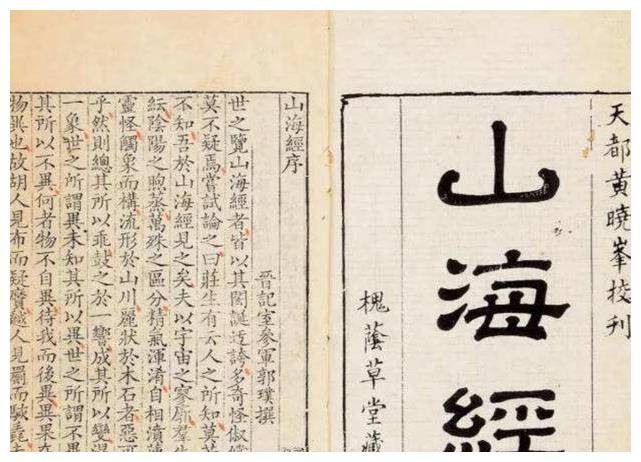 天都黃曉峯挍刊
山海經
槐蔭草堂藏
山海經序
晉記室參軍郭璞撰
世之覽山海經者皆以其閎誕迂誇多奇怪俶
莫不疑焉嘗試論之曰莊生有云人之所知莫
不知吾於山海經見之矣夫以宇宙之寥廓羣生
紜陰陽之煦蒸萬殊之區分精氣渾淆自相濆
靈怪觸象而構流形於山川麗狀於木石者惡可
乎然則總其所以乖鼓之於一響成其所以變混
一象世之所謂異未知其所以異世之所謂不異
其所以不異何者物不自異待我而後異異果在
物異也故胡人見布而疑黂越人見罽而駭毳